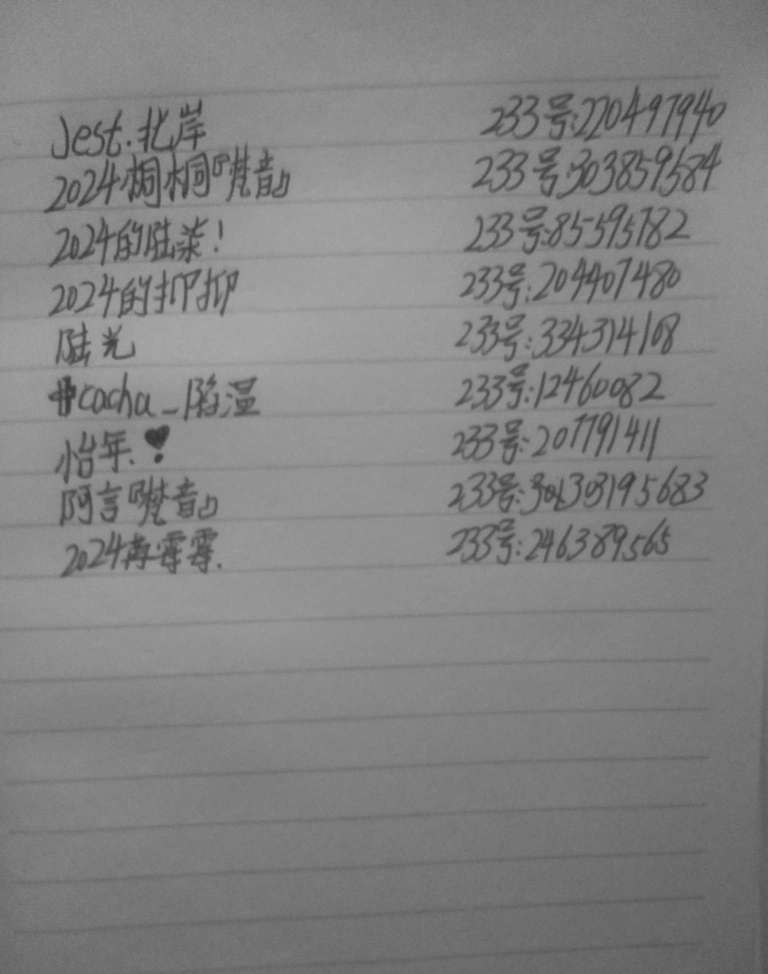 Jest.北岸 233号:220497940
2024桐桐『梵音』 233号:303859584
2024的陆柒! 233号:85595782
2024的抑抑 233号:204407480
陆光 233号:334314108
cocha_陷温 233号:12460082
怡年. 233号:207791411
阿言『梵音』 233号:
2024苒霏霏. 233号:246389565